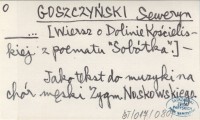 0 GOSZCZYŃSKI Seweryn
... [Wiersz o Dolinie Kościelis-
kiej z poematu "Sobótka"] -
Jako tekst do muzyki na
chór męski Zygm. Noskowskiego